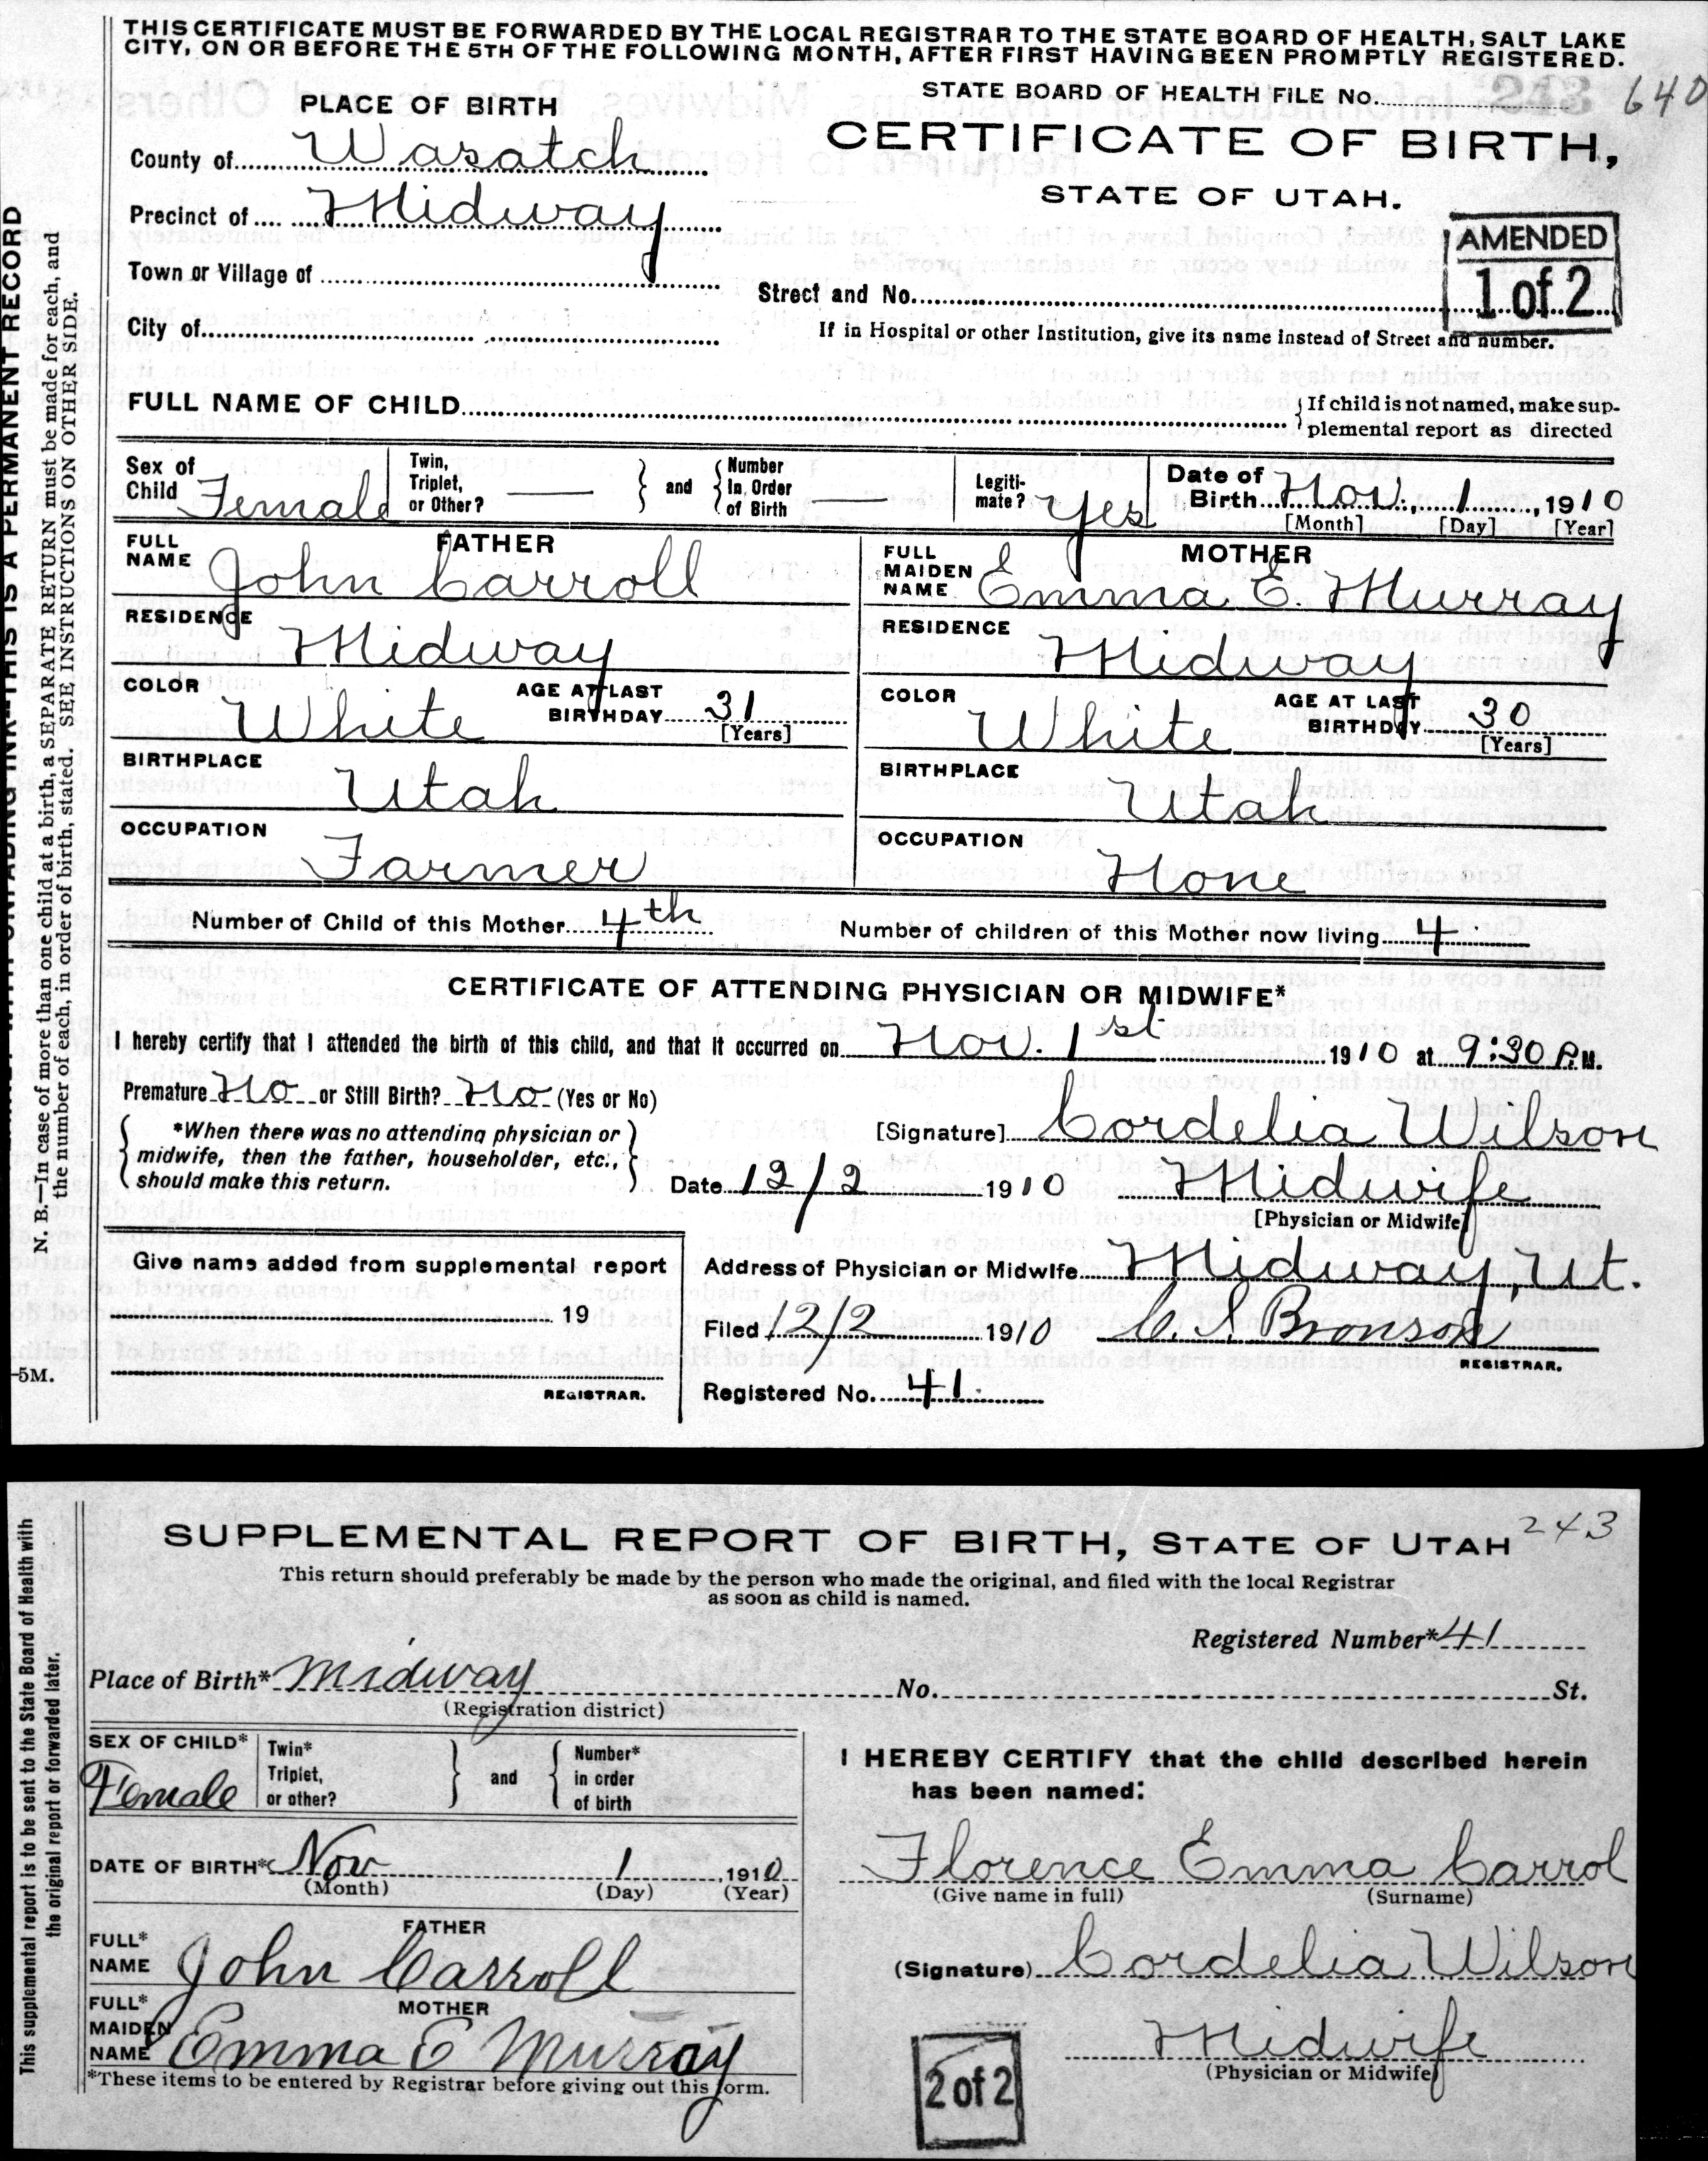 THIS CERTIFICATE MUST BE FORWARDED BY THE LOCAL REGISTRAR TO THE STATE BOARD OF HEALTH, SALT LAKE
CITY, ON OR BEFORE THE 5TH OF THE FOLLOWING MONTH, AFTER FIRST HAVING BEEN PROMPTLY REGISTERED.
STATE BOARD OF HEALTH FILE No. 640
PLACE OF BIRTH
CERTIFICATE OF BIRTH,
STATE OF UTAH.
County of Wasatch
Precinct of Midway
AMENDED
1 of 2
Town or Village of
Street and No.
City of
If in Hospital or other Institution, give its name instead of Street and number.
FULL NAME OF CHILD
If child is not named, make sup-
plemental report as directed
Sex of Child Female
Twin, Triplet, or Other? —
and
Number In Order of Birth —
Legiti-mate? Yes
Date of Birth Nov. 1, 1910
[Month] [Day] [Year]
FATHER
FULL NAME John Carroll
RESIDENCE Midway
COLOR White
AGE AT LAST BIRTHDAY 31
[Years]
BIRTHPLACE Utah
OCCUPATION Farmer
MOTHER
FULL MAIDEN NAME Emma E. Murray
RESIDENCE Midway
COLOR White
AGE AT LAST BIRTHDAY 30
[Years]
BIRTHPLACE Utah
OCCUPATION None
Number of Child of this Mother 4th
Number of children of this Mother now living 4
CERTIFICATE OF ATTENDING PHYSICIAN OR MIDWIFE*
I hereby certify that I attended the birth of this child, and that it occurred on Nov. 1st 1910 at 9:30 P.M.
Premature No or Still Birth? No (Yes or No)
*When there was no attending physician or
midwife, then the father, householder, etc.,
should make this return.
[Signature] Cordelia Wilson
Date 12/2 1910 Midwife
[Physician or Midwife]
Give name added from supplemental report
19
REGISTRAR.
Address of Physician or Midwife Midway, Ut.
Filed 12/2 1910 C. S. Bronson
REGISTRAR.
Registered No. 41
N. B.—In case of more than one child at a birth, a SEPARATE RETURN must be made for each, and
the number of each, in order of birth, stated. SEE INSTRUCTIONS ON OTHER SIDE.
THIS IS A PERMANENT RECORD
-5M.
SUPPLEMENTAL REPORT OF BIRTH, STATE OF UTAH 243
This return should preferably be made by the person who made the original, and filed with the local Registrar
as soon as child is named.
Registered Number* 41
Place of Birth* Midway No. St.
(Registration district)
SEX OF CHILD* Female
Twin* Triplet, or other?
and
Number* in order of birth
DATE OF BIRTH* Nov 1, 1910
(Month) (Day) (Year)
FATHER
FULL* NAME John Carroll
MOTHER
FULL* MAIDEN NAME Emma E Murray
*These items to be entered by Registrar before giving out this form.
I HEREBY CERTIFY that the child described herein
has been named:
Florence Emma Carrol
(Give name in full) (Surname)
(Signature) Cordelia Wilson
Midwife
(Physician or Midwife)
2 of 2
This supplemental report is to be sent to the State Board of Health with
the original report or forwarded later.